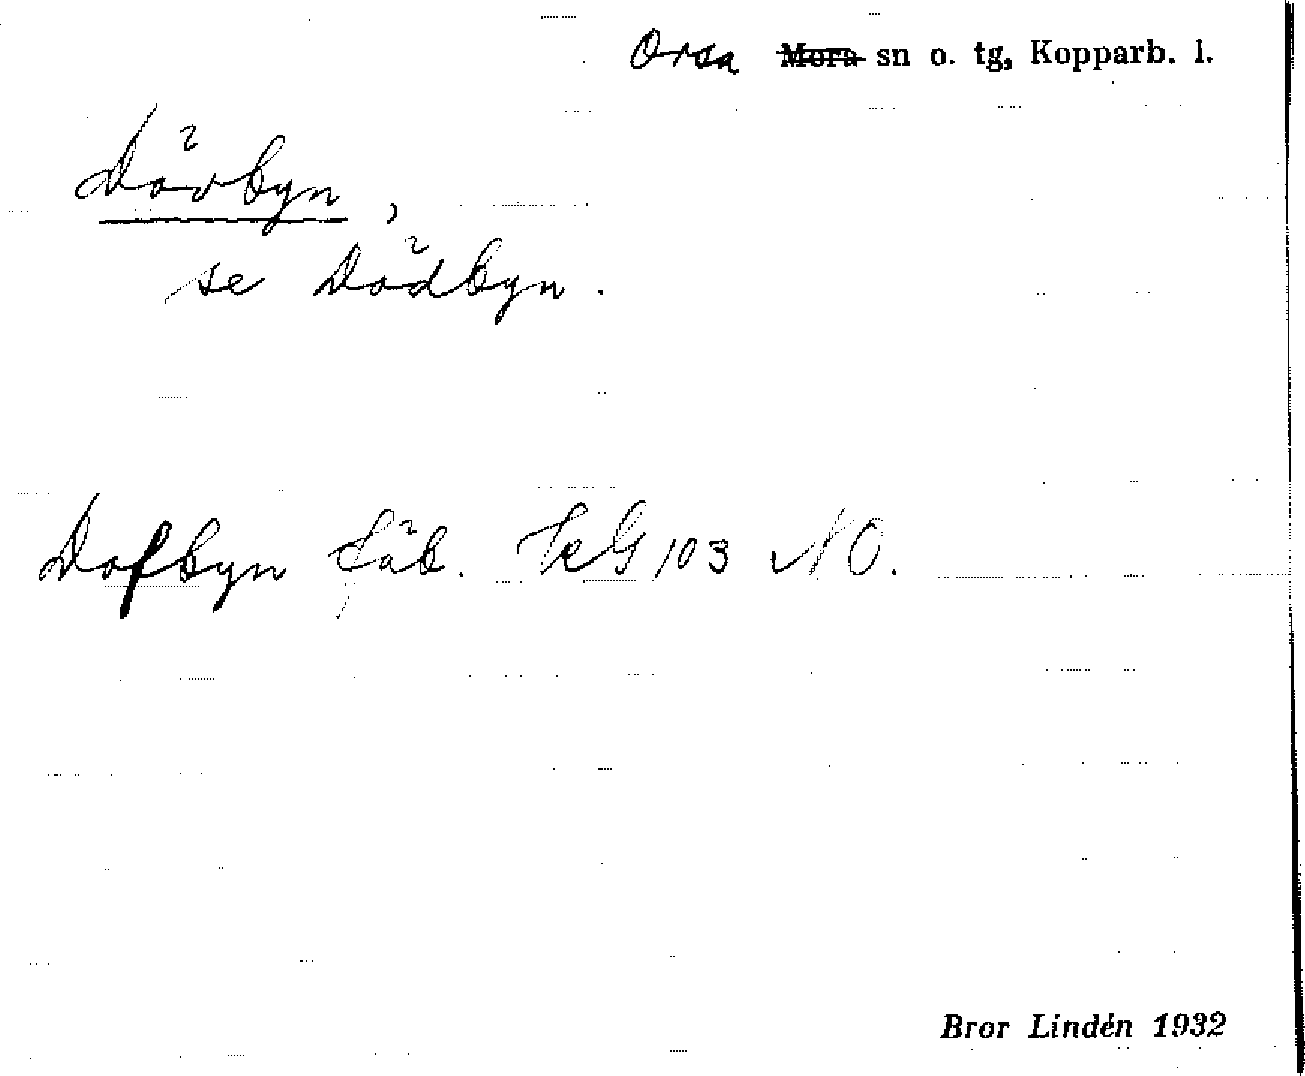 Orsa Mora sn o. tg, Kopparb. l.
Dövbyn,
se Dödbyn.
Dofbyn fäb. KG 103 NO.
Bror Lindén 1932